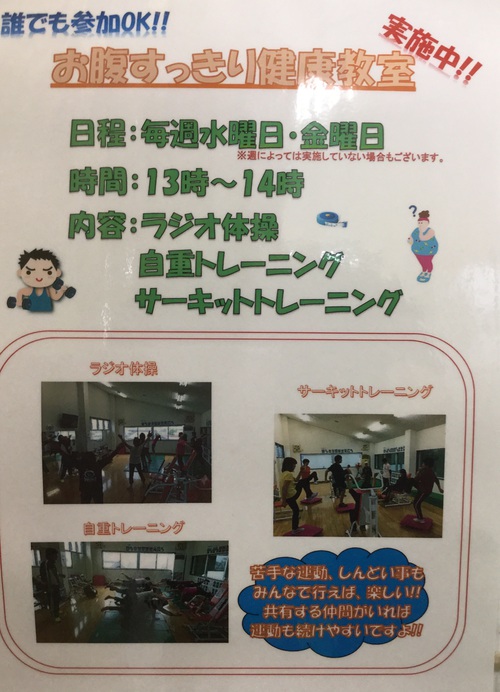 誰でも参加OK!!
実施中!!
お腹すっきり健康教室
日程：毎週水曜日・金曜日
※週によっては実施していない場合もございます。
時間：13時～14時
内容：ラジオ体操
自重トレーニング
サーキットトレーニング
ラジオ体操
サーキットトレーニング
自重トレーニング
苦手な運動、しんどい事も
みんなで行えば、楽しい!!
共有する仲間がいれば
運動も続けやすいですよ!!